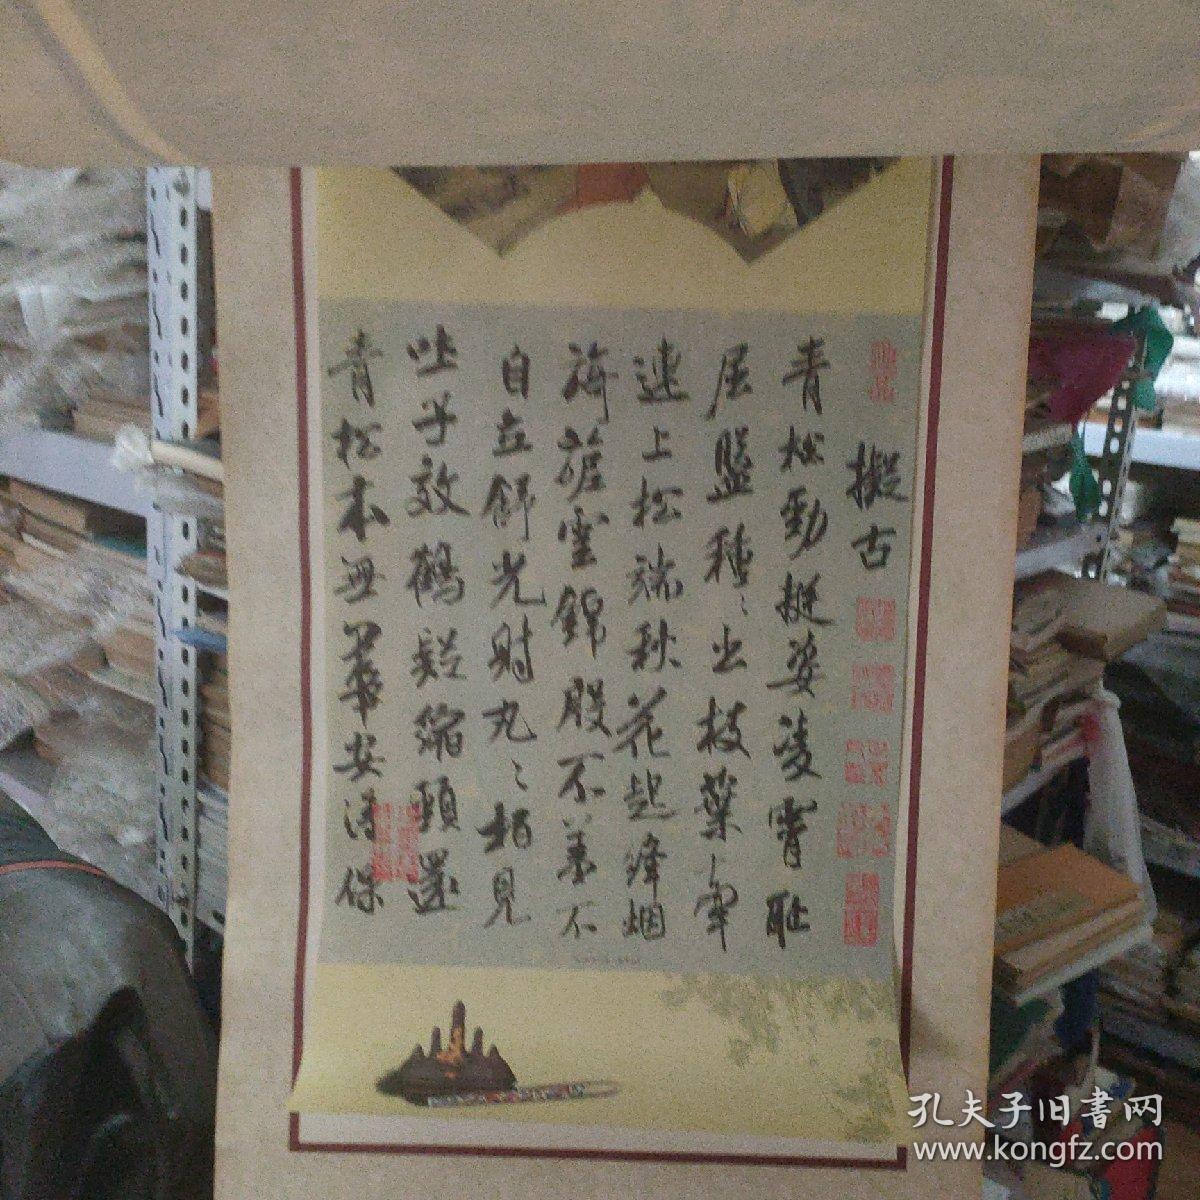 擬古
青松勁挺姿凌霄恥
屈盤種〻出枝葉牽
連上松端秋花起絳烟
旖旎雲錦殷不羞不
自立舒光射丸〻柏見
吐子效鶴疑縮頸還
青松本無華安得保
孔夫子旧書网
www.kongfz.com